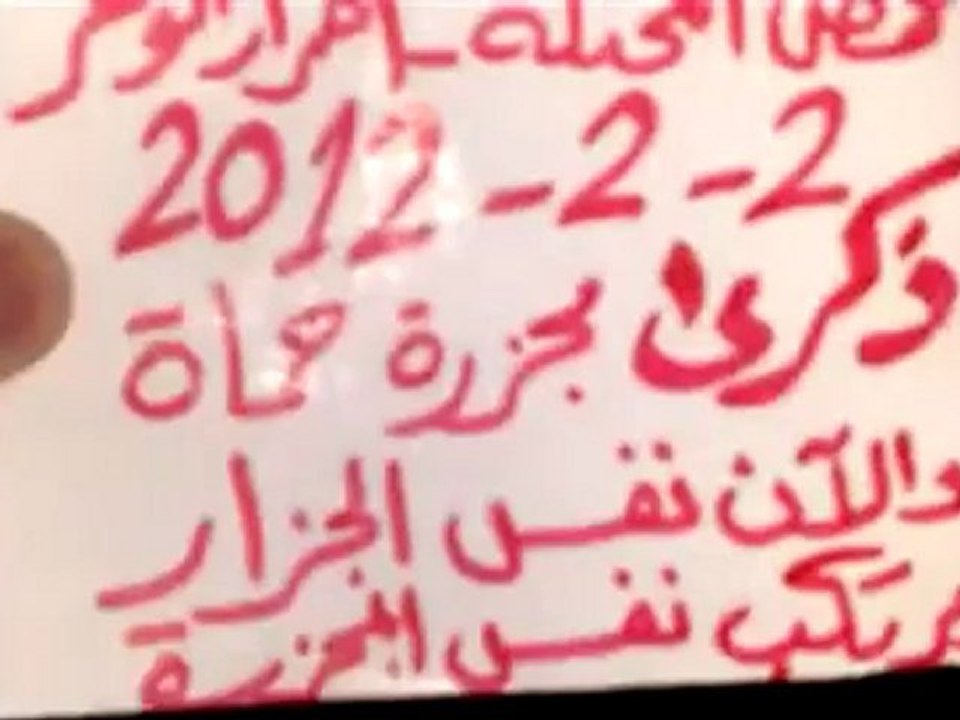 حمص المحتلة - احرار الوعر
2-2-2012
ذكرى مجزرة حماة
والآن نفس الجزار
يرتكب نفس المجزرة